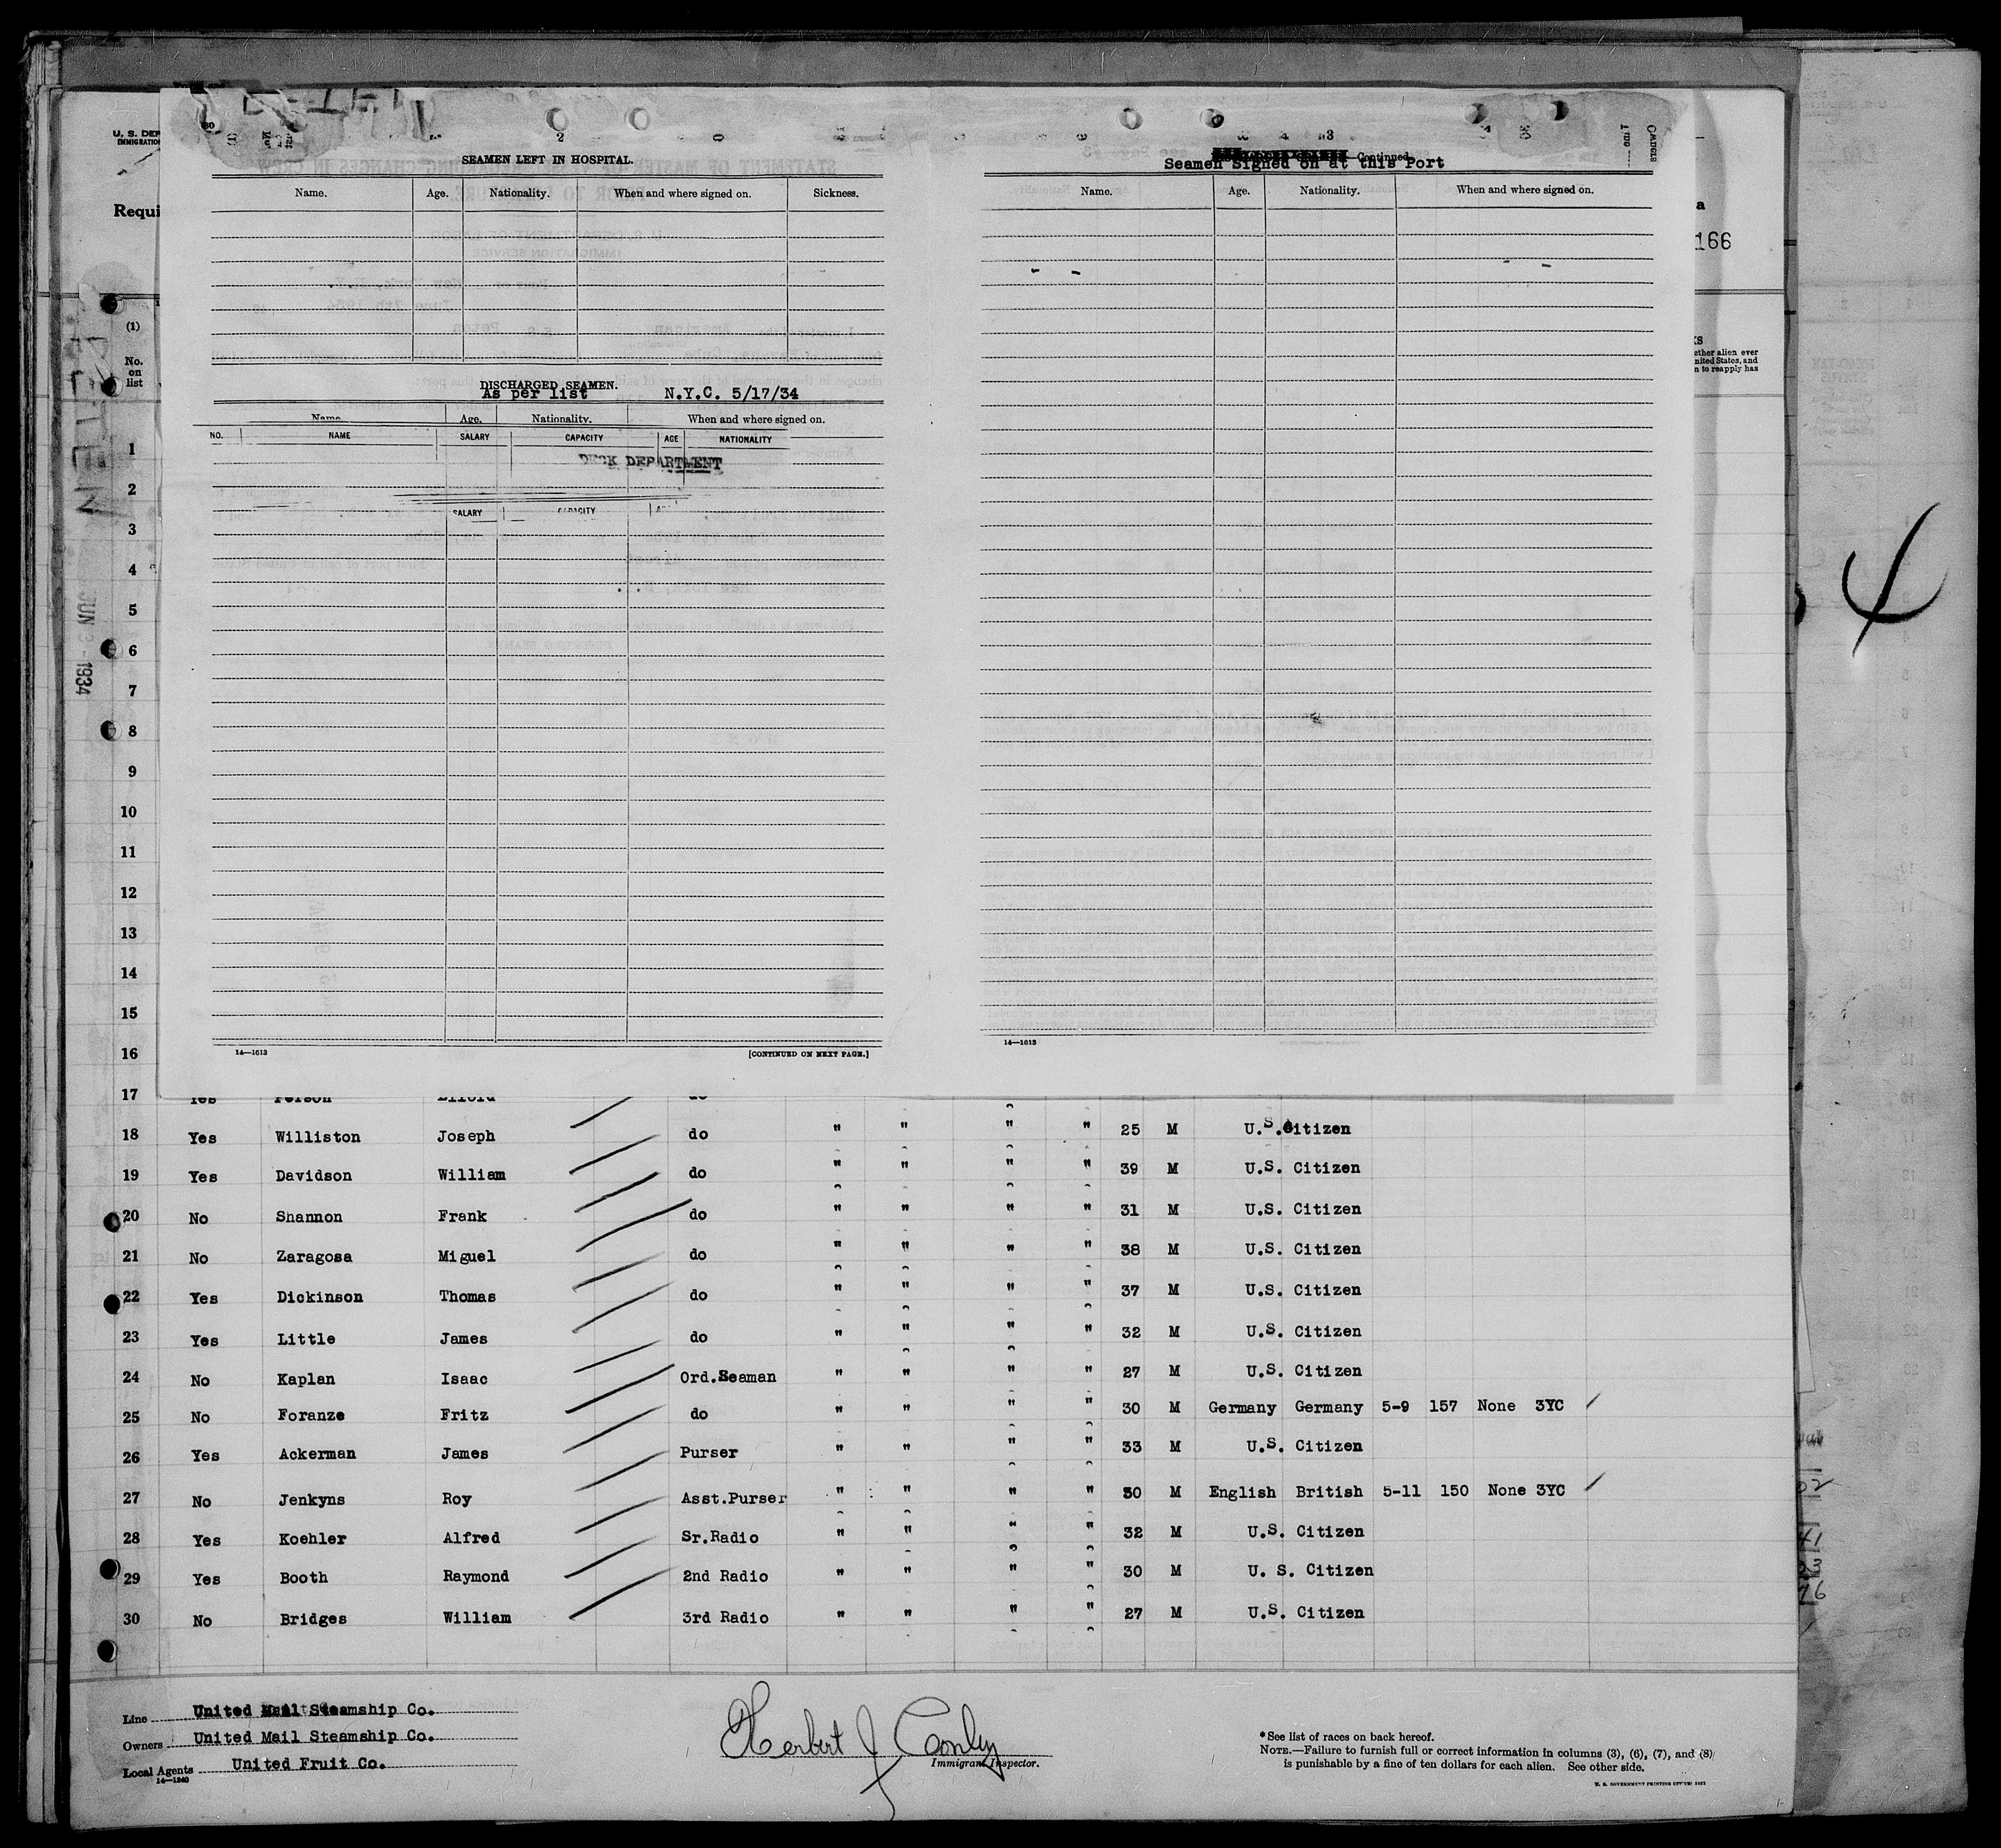 U. S. DEP
IMMIGRATION
Requi
(1)
No.
on
list
SEAMEN LEFT IN HOSPITAL.
Name. Age. Nationality. When and where signed on. Sickness.
DISCHARGED SEAMEN.
As per list N.Y.C. 5/17/34
Name. Age. Nationality. When and where signed on.
NO. NAME SALARY CAPACITY AGE NATIONALITY
DECK DEPARTMENT
SALARY CAPACITY
14—1613 [CONTINUED ON NEXT PAGE.]
Continued
Seamen Signed on at this Port
Name. Age. Nationality. When and where signed on.
14—1613
a
166
ether alien ever
nited States, and
n to reapply has
4
JUN 3 - 1934
1
2
3
4
5
6
7
8
9
10
11
12
13
14
15
16
17 Yes Person do
18 Yes Williston Joseph do " " " " 25 M U.S. Citizen
19 Yes Davidson William do " " " " 39 M U.S. Citizen
20 No Shannon Frank do " " " " 31 M U.S. Citizen
21 No Zaragosa Miguel do " " " " 38 M U.S. Citizen
22 Yes Dickinson Thomas do " " " " 37 M U.S. Citizen
23 Yes Little James do " " " " 32 M U.S. Citizen
24 No Kaplan Isaac Ord.Seaman " " " " 27 M U.S. Citizen
25 No Foranze Fritz do " " " " 30 M Germany Germany 5-9 157 None 3YC
26 Yes Ackerman James Purser " " " " 33 M U.S. Citizen
27 No Jenkyns Roy Asst.Purser " " " " 30 M English British 5-11 150 None 3YC
28 Yes Koehler Alfred Sr.Radio " " " " 32 M U.S. Citizen
29 Yes Booth Raymond 2nd Radio " " " " 30 M U. S. Citizen
30 No Bridges William 3rd Radio " " " " 27 M U.S. Citizen
Line United Mail Steamship Co.
Owners United Mail Steamship Co.
Local Agents United Fruit Co.
14—1240
Herbert J Conley
Immigrant Inspector.
* See list of races on back hereof.
NOTE.—Failure to furnish full or correct information in columns (3), (6), (7), and (8)
is punishable by a fine of ten dollars for each alien. See other side.
U. S. GOVERNMENT PRINTING OFFICE: 1933